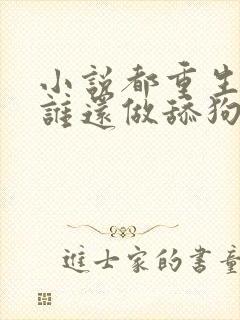 小說都重生
誰還做舔狗
進士家的書童